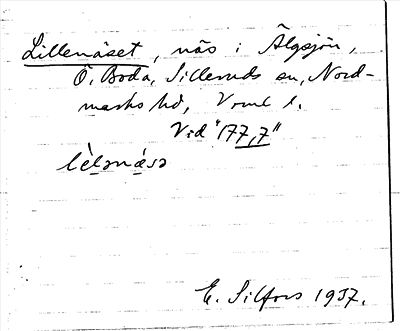 Lillenäset, näs i Älgsjön,
Ö. Boda, Silleruds sn, Nord-
marks hd, Vrml l.
Vid "177,7"
lèlnäsə
E. Silfors 1937.